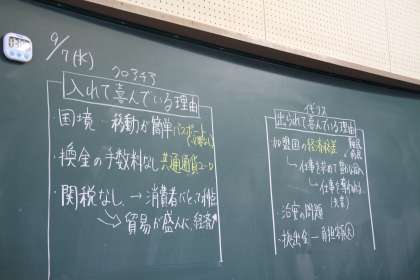 9/7(水)
クロアチア
入れて喜んでいる理由
・国境 移動が簡単 パスポート
・換金の手数料なし 共通通貨ユーロ
・関税なし → 消費者にとって
→ 貿易が盛んに、経済
イギリス
出られて喜んでいる理由
加盟国の経済格差
仕事を求めて
仕事を
(失業)
・治安の問題
・拠出金 ー 負担額 大